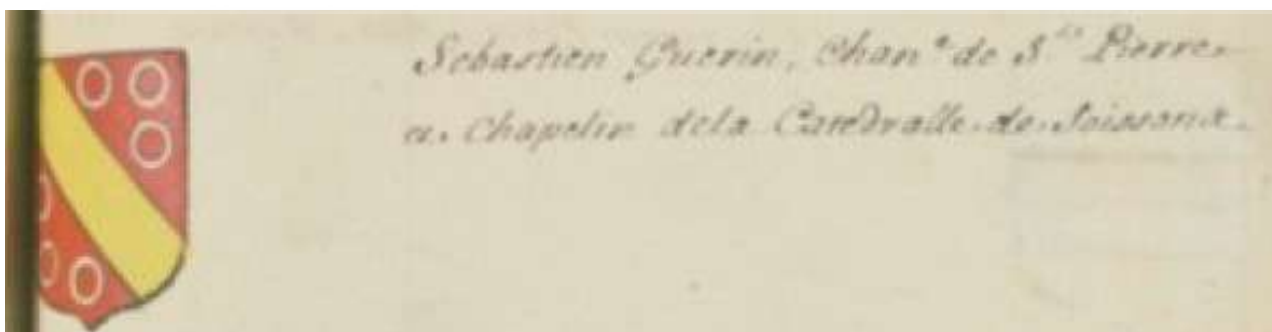 Sebastien Guerin, Chan.e de S.t Pierre
et Chapelin dela Catedralle de Soissons.